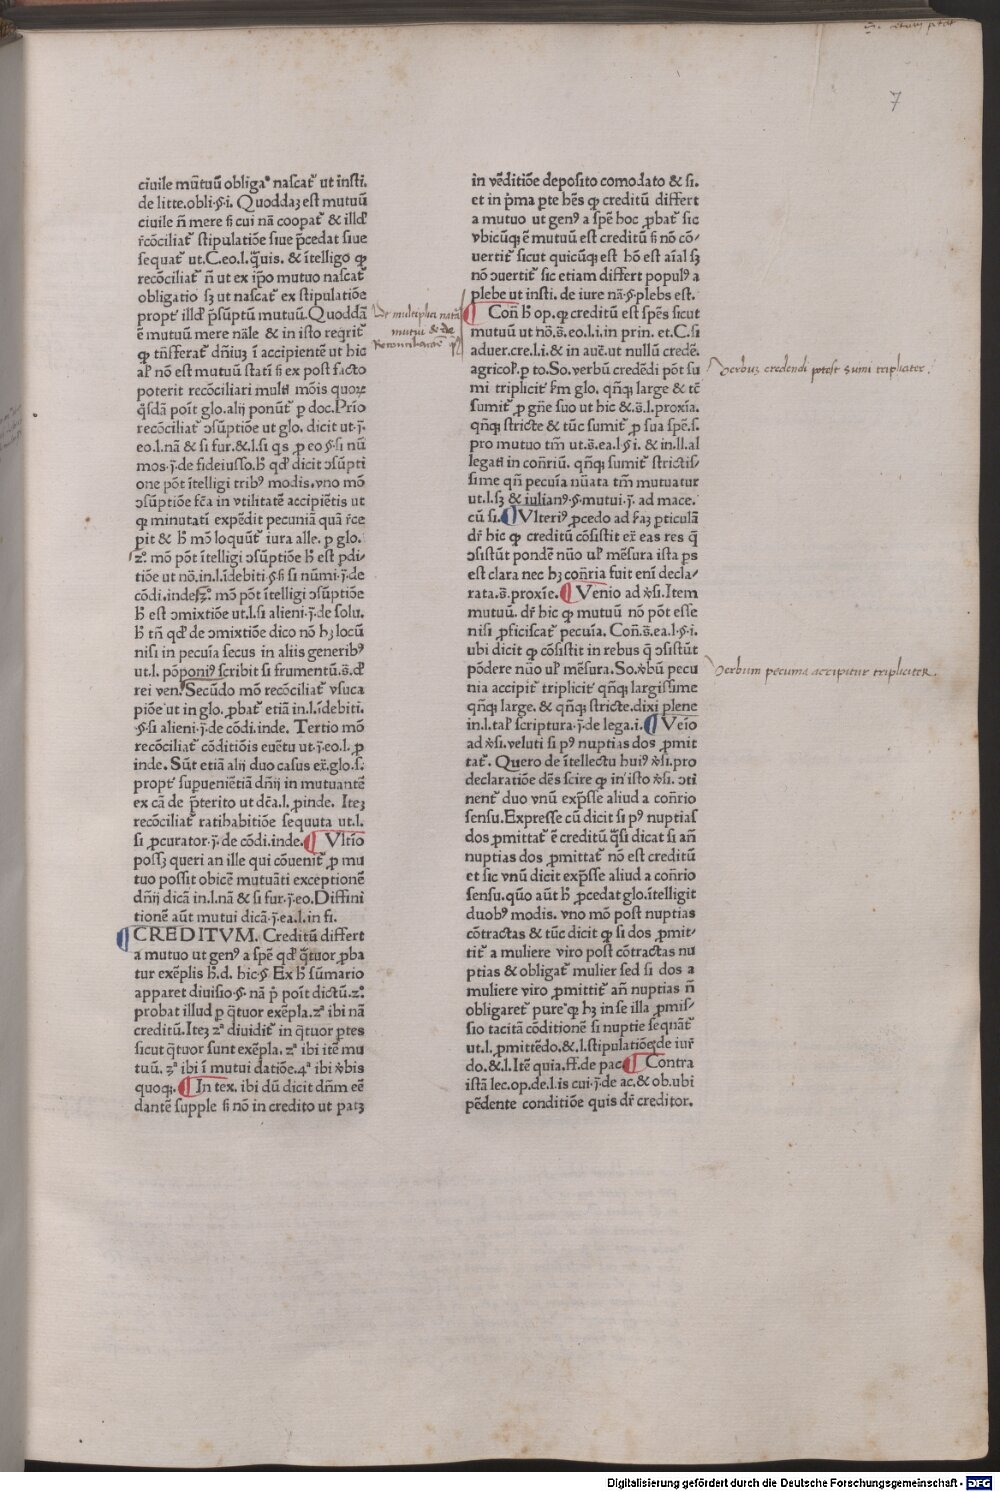 7
ciuile mūtuū obligaᵒ nascat᷑ ut insti.
de litte.obli.§.i. Quoddaꝫ est mutuū
ciuile n̄ mere ſi cui nā coopat᷑ & illḋ
r̄cōciliat᷑ stipulatiōe siue p̄cedat siue
sequat᷑ ut.C.eo.l.q̄uis. & ītelligo ꝙ
recōciliat᷑ n̄ ut ex ip̄o mutuo nascat᷑
obligatio sꝫ ut nascat᷑ ex stipulatiōe
propt᷑ illḋ p̄suptū mutuū. Quoddā
ē mutuū mere nāle & in isto req̄rit᷑
ꝙ tn̄sferat᷑ dn̄iuꝫ ī accipientē ut hic
al᷑ nō est mutuū statī ſi ex post facto
poterit recōciliari multi mōis quoꝝ
q̄sdā poīt glo.alij ponūt᷑ ꝑ doc. Prīo
recōciliat᷑ ↄsūptiōe ut glo. dicit ut.j̄.
eo.l.nā & si fur.&.l.si qs ꝓ eo §.si nū
mos.j̄.de fideiusso.h̄ qḋ dicit ↄsūpti
one pōt ītelligi tribꝰ modis.vno mō
ↄsūptiōe fc̄a in vtilitatē accipiētis ut
ꝙ minutatī expēdit pecuniā quā r̄ce
pit & h̄ mō loquūt᷑ iura alle. ꝑ glo.
zᵒ. mō pōt ītelligi ↄsūptiōe h̄ est ꝑdi/
tiōe ut nō.in.l.īdebiti.§.ſi si nūmi.j̄.de
cōdi.inde. zᵒ. mō pōt ītelligi ↄsūptiōe
h̄ est ↄmixtiōe ut.l.si alieni.j̄.de solu.
h̄ tn̄ qḋ de ↄmixtiōe dico nō hꝫ locū
nisi in pecuīa secus in aliis generibꝰ
ut.l. pōponiꝰ scribit si frumentū.s̄.ḋ
rei ven. Secūdo mō recōciliat᷑ vsuca
piōe ut in glo. ꝓbat᷑ etiā in.l.īdebiti.
.§.si alieni.j̄.de cōdi.inde. Tertio mō
recōciliat᷑ cōditiōis euētu ut.j̄.eo.l. ꝓ
inde. Sūt etiā alij duo casus ex̄.glo.s.
propt᷑ supueniētiā dn̄ij in mutuantē
ex cā de p̄terito ut dc̄a.l. ꝓinde. Iteꝫ
recōciliat᷑ ratihabitiōe sequuta ut.l.
si ꝓcurator.j̄.de cōdi.inde. ¶ Vltīo
possꝫ queri an ille qui cōuenit᷑ ꝓ mu
tuo possit obicē mutuāti exceptionē
dn̄ij dicā in.l.nā & si fur.j̄.eo. Diffini
tionē aūt mutui dicā.j̄.ea.l.in fi.
¶ CREDITVM. Creditū differt
a mutuo ut genꝰ a spē qḋ q̄tuor ꝓba
tur exēplis h̄.d. hic.§ Ex h̄ sūmario
apparet diuisio.§. nā p̄ poīt dictū.zᵒ.
probat illud ꝑ q̄tuor exēpla.zᵃ ibi nā
creditū. Iteꝫ zᵃ diuidit᷑ in q̄tuor ꝑtes
sicut q̄tuor sunt exēpla. zᵃ ibi itē mu
tuū. zᵃ ibi ī mutui datiōe.4ᵃ ibi v̄bis
quoqꝫ. ¶ In tex. ibi dū dicit dn̄m eē
dantē supple ſi nō in credito ut patꝫ
multiplici
mutui & de
in vēditiōe deposito comodato & si.
et in p̄ma ꝑte hēs ꝙ creditū differt
a mutuo ut genꝰ a spē hoc ꝓbat᷑ sic
vbicūqꝫ ē mutuū est creditū ſi nō cō/
uertit᷑ sicut quicūqꝫ est hō est aīal sꝫ
nō ↄuertit᷑ sic etiam differt populꝰ a
plebe ut insti. de iure nā.§.plebs est.
¶ Con̄ h̄ op. ꝙ creditū est spēs sicut
mutuū ut nō.s̄.eo.l.i.in prin. et.C.si
aduer.cre.l.i.& in auc̄.ut nullū credē.
agricol᷑.ꝑ to. So.verbū credēdi pōt su
mi triplicit᷑ ẜm glo. qn̄qꝫ large & tc̄
sumit᷑ ꝓ gn̄e suo ut hic &.s̄.l.proxīa.
qn̄qꝫ stricte & tūc sumit᷑ ꝓ sua spē.s.
pro mutuo tm̄ ut.s̄.ea.l.§ i. & in.ll.al
legati in con̄riū. qn̄qꝫ sumit᷑ strictis/
sime qn̄ pecuīa nūata tm̄ mutuatur
ut.l.sꝫ & iulianꝰ.§.mutui.j̄. ad mace.
cū si. ¶ Vlteriꝰ ꝓcedo ad s̄aꝫ ꝑticulā
dr̄ hic ꝙ creditū cōsistit ex̄ eas res q̄
ↄsistūt pondē nūo ul᷑ mēsura ista ꝑs
est clara nec hꝫ con̄ria fuit enī decla/
rata.s̄.proxīe. ¶ Venio ad v̄si. Item
mutuū. dr̄ hic ꝙ mutuū nō pōt esse
nisi ꝓficiscat᷑ pecuīa. Con̄.s̄.ea.l.§.i.
ubi dicit ꝙ cōsistit in rebus q̄ ↄsistūt
pōdere nūo ul᷑ mēsura. So.v̄bū pecu
nia accipit᷑ triplicit᷑ qn̄qꝫ largissime
qn̄qꝫ large. & qn̄qꝫ stricte.dixi plene
in.l.tal᷑ scriptura.j̄.de lega.i. ¶ Veīo
ad v̄si.veluti si pꝰ nuptias dos ꝓmit
tat᷑. Quero de ītellectu huiꝰ v̄si.pro
declaratiōe dēs scire ꝙ in isto v̄si. ↄti
nent᷑ duo vnū exp̄sse aliud a con̄rio
sensu. Expresse cū dicit si pꝰ nuptias
dos ꝓmittat᷑ ē creditū q̄si dicat si an̄
nuptias dos ꝓmittat᷑ nō est creditū
et sic vnū dicit exp̄sse aliud a con̄rio
sensu. quō aūt h̄ ꝓcedat glo.ītelligit
duobꝰ modis. vno mō post nuptias
cōtractas & tūc dicit ꝙ si dos ꝓmit/
tit᷑ a muliere viro post cōtractas nu
ptias & obligat᷑ mulier sed si dos a
muliere viro ꝓmittit᷑ an̄ nuptias n̄
obligaret᷑ pure ꝙ hꝫ in se illa ꝓmis/
sio tacitā cōditionē si nuptie seqnāt᷑
ut.l. ꝓmittēdo.&.l.stipulatiōeꝫ de iur̄
do.&.l. Itē quia.ff.de pac. ¶ Contra
istā lec.op.de.l.is cui.j̄.de ac.& ob.ubi
pēdente conditiōe quis dr̄ creditor.
Verbuꝫ credendi potest sumi tripliciter.
Verbum pecunia accipitur tripliciter.
Digitalisierung gefördert durch die Deutsche Forschungsgemeinschaft - DFG